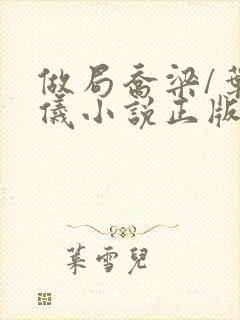 做局喬梁/葉
儀小說正版
葉雪兒